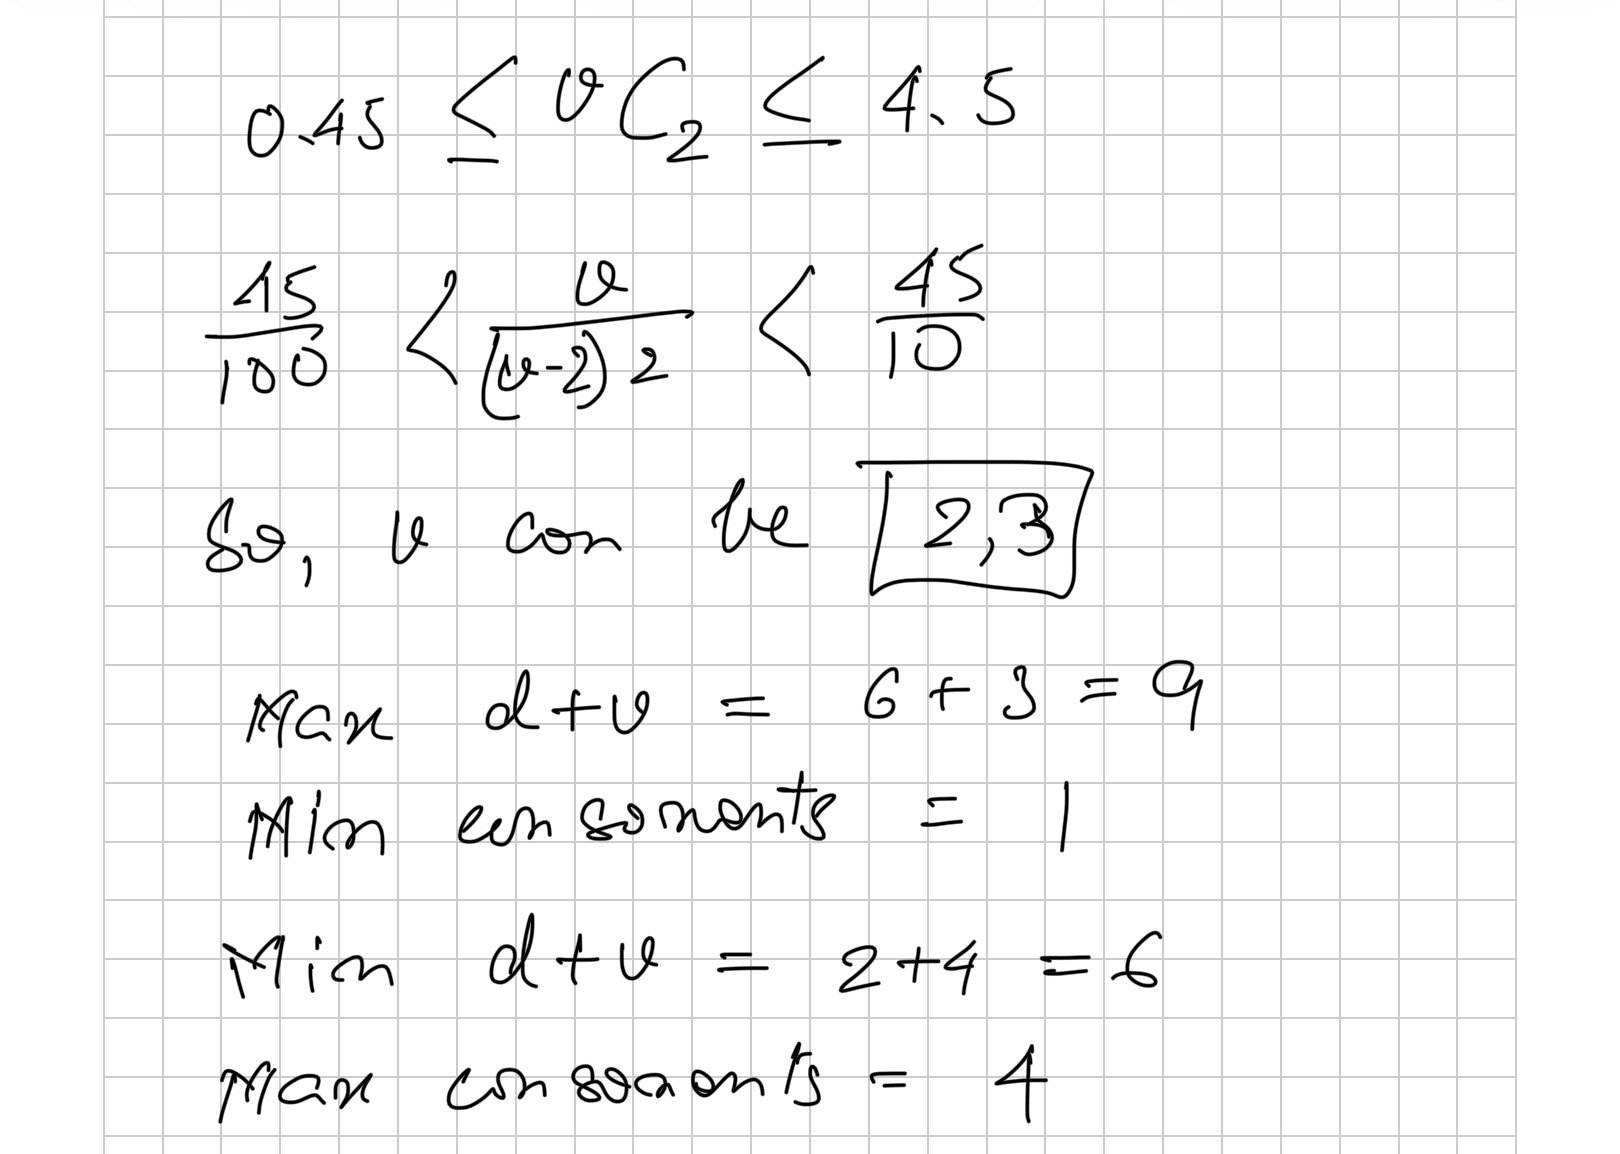 0.45 ≤ vC₂ ≤ 4.5
45/100 < v/((v-2) 2) < 45/10
So, v can be 2,3
Max d+v = 6+3 = 9
Min consonants = 1
Min d+v = 2+4 = 6
Max consonants = 4